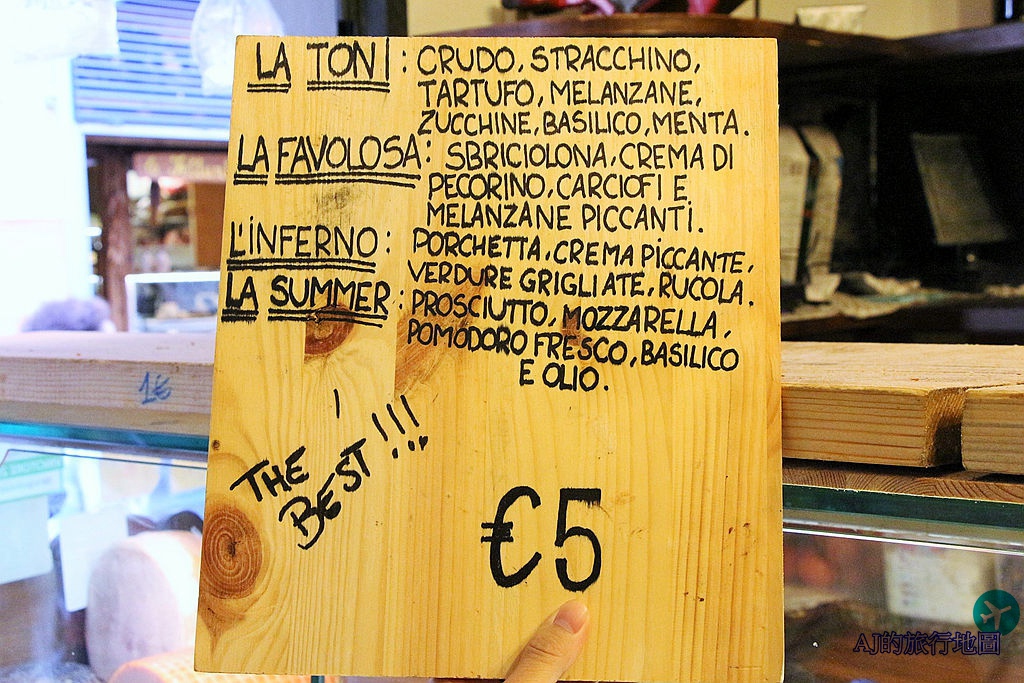 LA TONI: CRUDO, STRACCHINO,
TARTUFO, MELANZANE,
ZUCCHINE, BASILICO, MENTA.
LA FAVOLOSA: SBRICIOLONA, CREMA DI
PECORINO, CARCIOFI E
MELANZANE PICCANTI.
L'INFERNO: PORCHETTA, CREMA PICCANTE,
VERDURE GRIGLIATE, RUCOLA.
LA SUMMER: PROSCIUTTO, MOZZARELLA,
POMODORO FRESCO, BASILICO
E OLIO.
1€
THE
BEST!!!
€5
AJ的旅行地圖